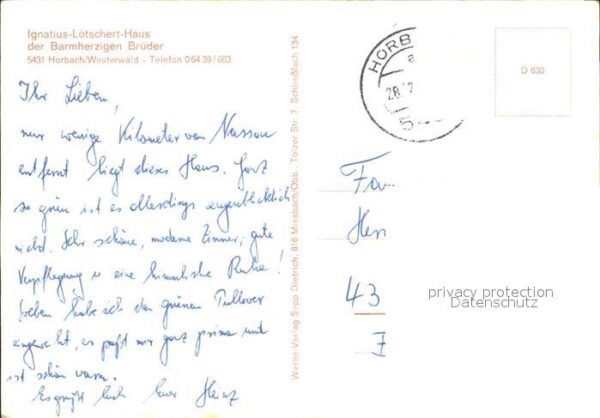 Ignatius-Lötschert-Haus
der Barmherzigen Brüder
5431 Horbach/Westerwald - Telefon 06439/663
Ihr Lieben,
nur wenige Kilometer von Nassau
entfernt liegt dieses Haus. Ganz
so grün ist es allerdings augenblicklich
nicht. Sehr schöne, moderne Zimmer, gute
Verpflegung u eine himmlische Ruhe!
Soeben habe ich den grünen Pullover
eingeweiht, er paßt mir ganz prima und
ist schön warm.
Es grüßt Euch Euer Heinz
Werbe-Verlag Sepp Dietrich, 816 Miesbach/Obb., Tölzer Str. 7, Schließfach 134
HORB
28.
54
D 630
Fam.
43
privacy protection
Datenschutz